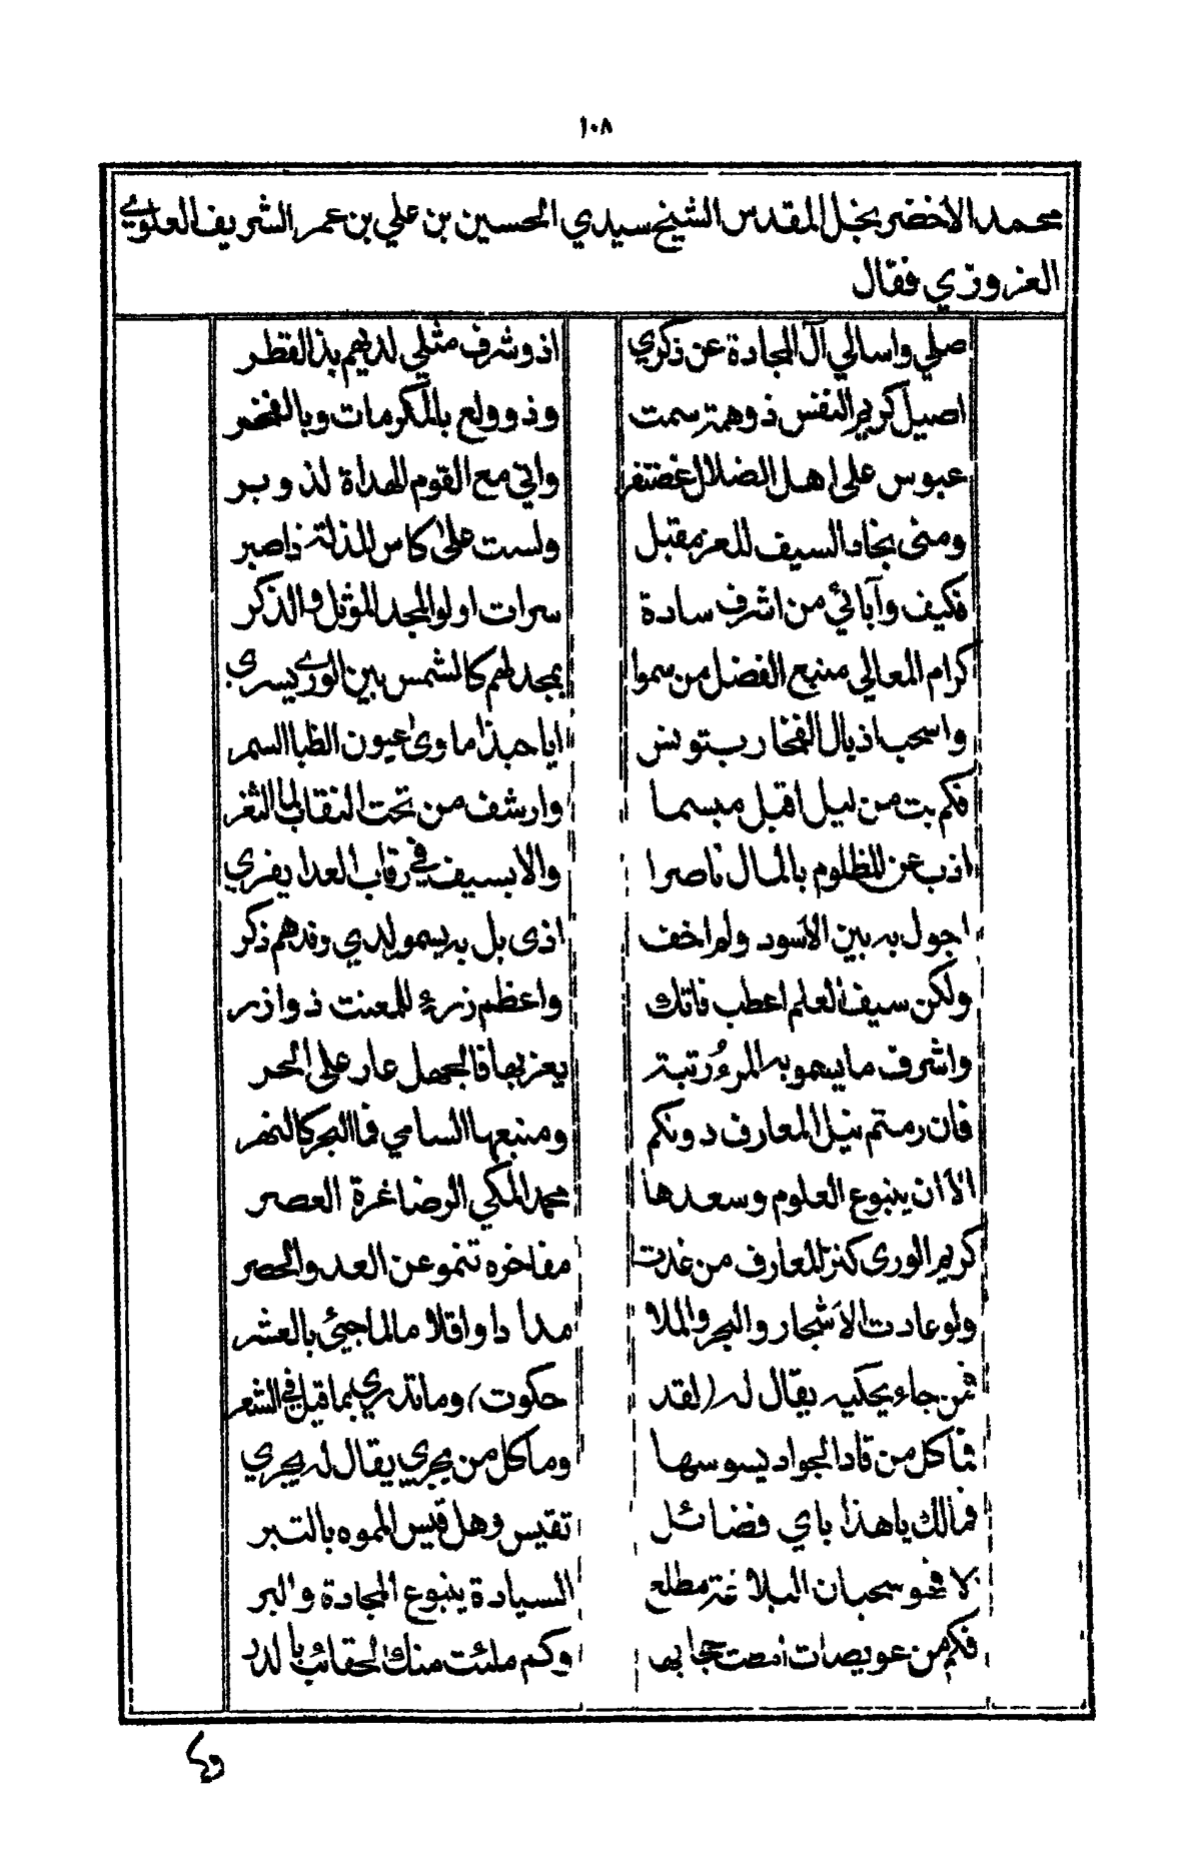 ١٠٨
محمد الاخضر نجل المقدس الشيخ سيدي الحسين بن علي بن عمر الشريف العلوي
العزوزي فقال
صلي واسالي آل المجادة عن ذكري اذ وشرف مثلي لديهم بذا القطر
اصيل كريم النفس ذو همة سمت وذو ولع بالمكرمات وبالفخر
عبوس على اهل الضلال غضنفر واني مع القوم الهداة لذو بر
ومني نجاد السيف للعز مقبل ولست على كاس المذلة ذا صبر
فكيف وآبائي من اشرف سادة سرات اولو المجد المؤثل والذكر
كرام المعالي منبع الفضل من سموا بمجد لهم كالشمس بين الورى يسري
واسحب اذيال الفخار بتونس ايا حبذا ماوى عيون الظبا السمر
فكم بت من ليل اقبل مبسما وارشف من تحت النقاب لما الثغر
اذب عن المظلوم بالمال ناصرا والا بسيف في رقاب العدا يفري
اجول به بين الاسود ولم اخف اذى بل به يسمو لدي وفدهم ذكر
ولكن سيف العلم اعطب فاتك واعظم زرء للمعنت ذو ازر
واشرف ما يسمو به المرءُ رتبة يعز بها فالجهل عار على الحر
فان رمتم نيل المعارف دونكم ومنبعها السامي فما البحر كالنهر
الا ان ينبوع العلوم وسعدها محمد المكي الرضا غرة العصر
كريم الورى كنز المعارف من غدت مفاخره تنمو عن العد والحصر
ولو عادت الاشجار والبحر والملا مدادا واقلاما لما جيئ بالعشر
فمن جاء يحكيه يقال له (لقد حكوت) وما تدري بما قيل في الشعر
فما كل من قاد الجواد يسوسها وما كل من يجري يقال له يجري
فما لك يا هذا باي فضائل تقيس وهل قيس المموه بالتبر
لا فهو سحبان البلاغة مطلع السيادة ينبوع المجادة والبر
فكم من عويصات حجابها وكم ملئت منك الحقائب بالدر